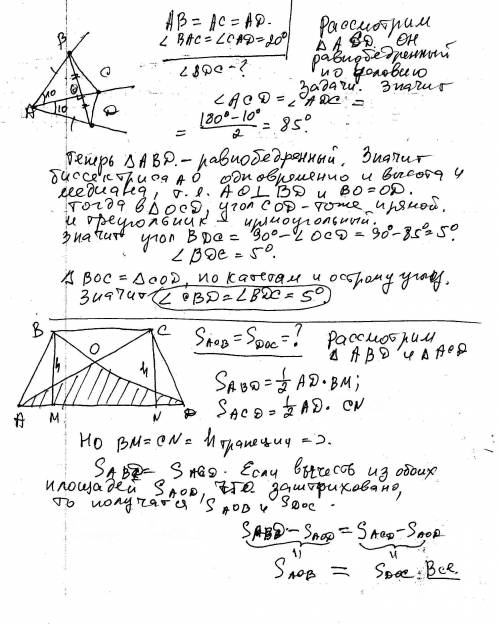 AB = AC = AD.
∠BAC = ∠CAD = 20°
∠BDC - ?
Рассмотрим
Он
равнобедренный
по условию
задачи. Значит
∠ACD = ∠ADC =
= (180° - 10°)/2 = 85°.
B
C
A
O
D
10
10
Теперь △ABD. - равнобедренный. Значит
биссектриса AO одновременно и высота и
медиана, т.е. AO⊥BD и BO = OD.
Тогда в △OCD, угол COD - тоже прямой.
и треугольник - прямоугольный.
Значит угол BDC = 90° - ∠OCD = 90 - 85° = 5°.
∠BDC = 5°.
△BOC = △COD, по катетам и острому углу.
Значит ∠CBD = ∠BDC = 5°.
B
C
O
h
h
A
M
N
D
S_AOB = S_DOC = ?
Рассмотрим
△ABD и △ACD
S_ABD = 1/2 AD · BM;
S_ACD = 1/2 AD · CN
Но BM = CN = h трапеции =>.
S_ABD = S_ACD. Если вычесть из обоих
площадей S_AOD, что заштриховано,
то получатся S_AOB и S_DOC.
S_ABD - S_AOD = S_ACD - S_AOD
S_AOB = S_DOC. Все.